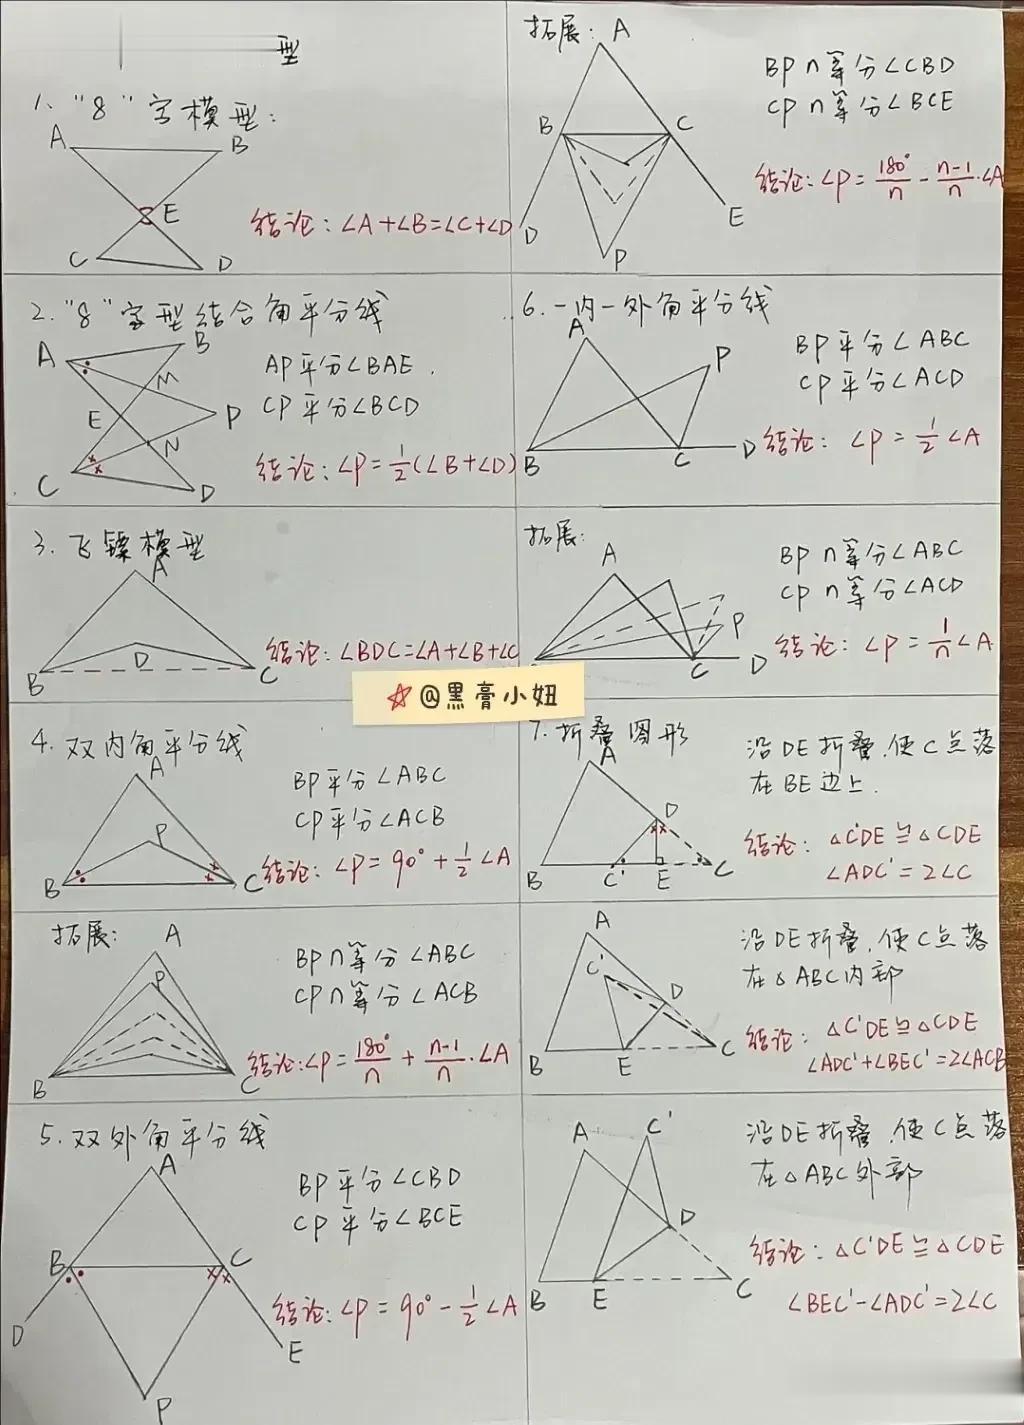 型
1、"8"字模型:
A
B
E
C
D
结论: ∠A+∠B=∠C+∠D
2."8"字型结合角平分线
A
B
M
E
P
N
C
D
AP平分∠BAE.
CP平分∠BCD
结论: ∠P=½(∠B+∠D)
3.飞镖模型
A
D
B
C
结论: ∠BDC=∠A+∠B+∠C
4.双内角平分线
A
P
B
C
BP平分∠ABC
CP平分∠ACB
结论: ∠P=90°+½∠A
拓展:
A
P
B
C
BP n等分∠ABC
CP n等分∠ACB
结论:∠P=180°/n+(n-1)/n·∠A
5.双外角平分线
A
B
C
D
E
P
BP平分∠CBD
CP平分∠BCE
结论: ∠P=90°-½∠A
拓展:
A
B
C
D
E
P
BP n等分∠CBD
CP n等分∠BCE
结论:∠P=180°/n-(n-1)/n·∠A
6.一内一外角平分线
A
P
B
C
D
BP平分∠ABC
CP平分∠ACD
结论: ∠P=½∠A
拓展:
A
P
C
D
BP n等分∠ABC
CP n等分∠ACD
结论: ∠P=1/n∠A
@黑膏小妞
7.折叠图形
A
D
B
C'
E
C
沿DE折叠,使C点落
在BE边上.
结论: △C'DE≌△CDE
∠ADC'=2∠C
A
C'
D
B
E
C
沿DE折叠,使C点落
在△ABC内部
结论: △C'DE≌△CDE
∠ADC'+∠BEC'=2∠ACB
A
C'
D
B
E
C
沿DE折叠,使C点落
在△ABC外部
结论: △C'DE≌△CDE
∠BEC'-∠ADC'=2∠C